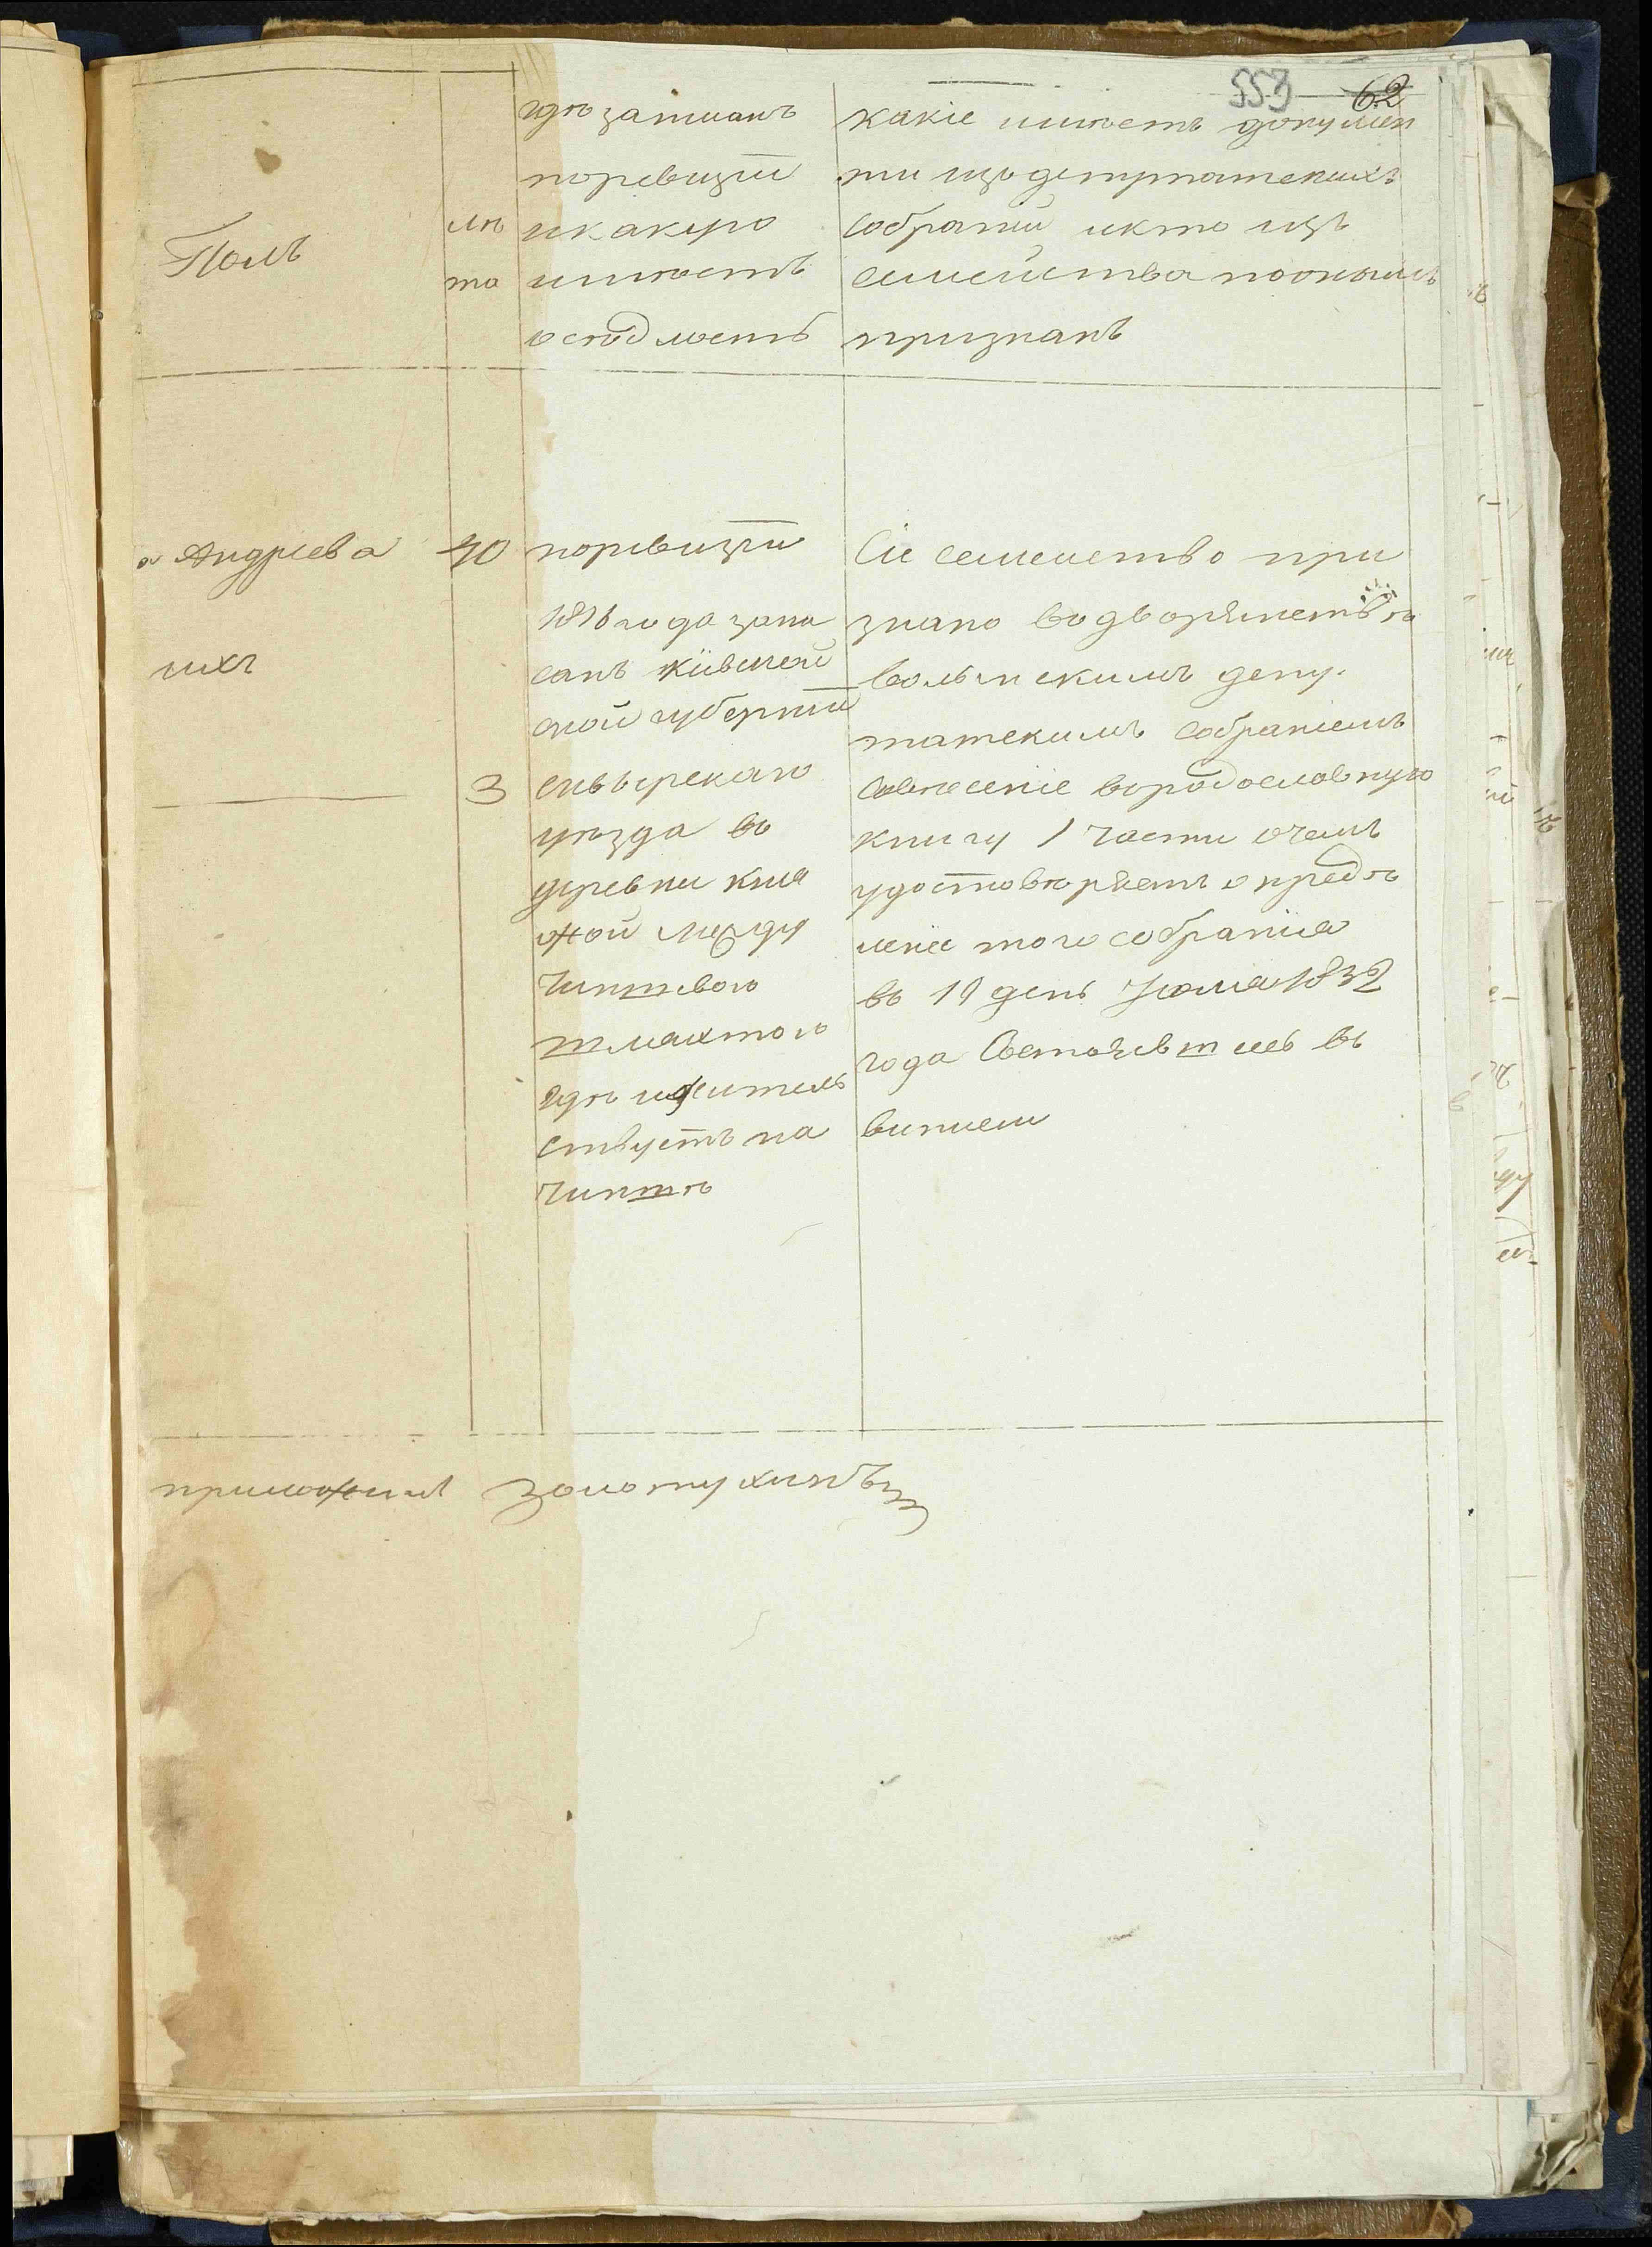 559 62
Полъ
лѣ
та
гдѣ записанъ
поревизіи
икакую
имѣетъ
оседлость
какіе имѣетъ докумен
ти изъ депутатскихъ
собраній икто изъ
семейства поонымъ
признанъ
Андреева
ихъ
40
3
поревизіи
1816 года запи
санъ кіевской
губерніи
уѣзда въ
деревни кня
жой между
чиншевою
шляхтою
гдѣ ижитель
ствуетъ на
чиншѣ
Сіе семейство при
знано водворянствѣ
волынскимъ депу
татскимъ собраніемъ
совнесеніе вородословную
книгу 1 части очемъ
удостовѣряетъ опредѣ
леніе того собранія
въ 19 день Іюля 1832
года Состоявшееся въ
приложилъ Золотухинъ